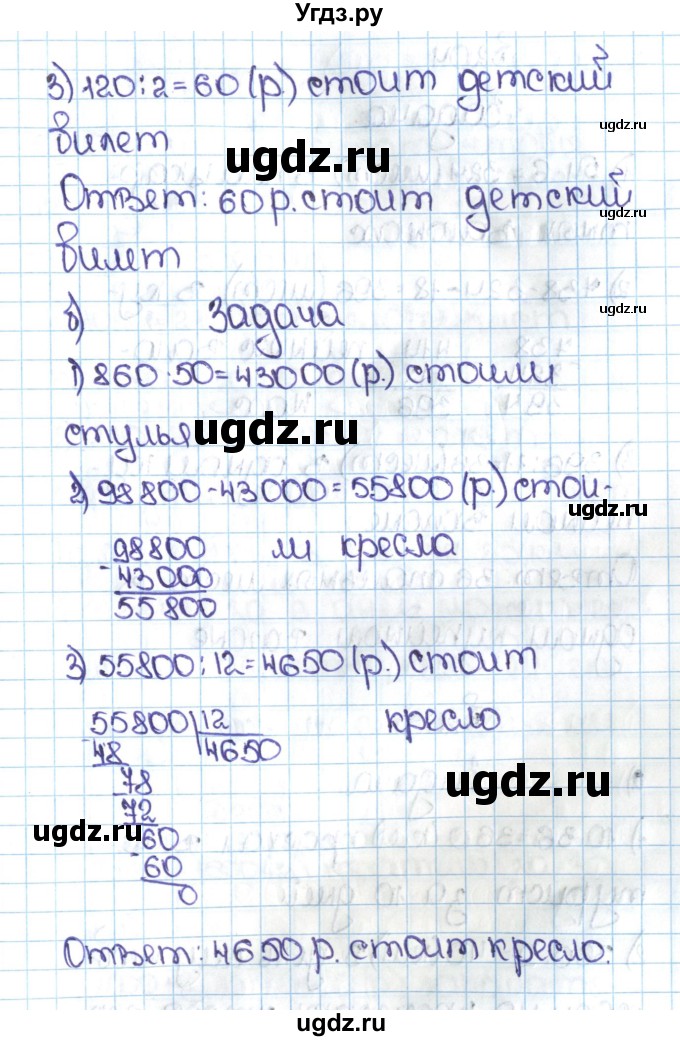 Угдз.ру
3) 120:2=60 (р.) стоит детский
ugdz.ru
билет
ugdz.ru
Ответ: 60 р. стоит детский
ugdz.ru
билет
б) Задача
ugdz.ru
1) 860·50=43000 (р.) стоили
стулья
ugdz.ru
2) 98800-43000=55800 (р.) стои-
ugdz.ru
98800 ли кресла
- 43000
55800
3) 55800:12=4650 (р.) стоит
55800 12 кресло
48 4650
78
ugdz.ru
72
60
ugdz.ru
- 60
0
Ответ: 4650 р. стоит кресло.
ugdz.ru